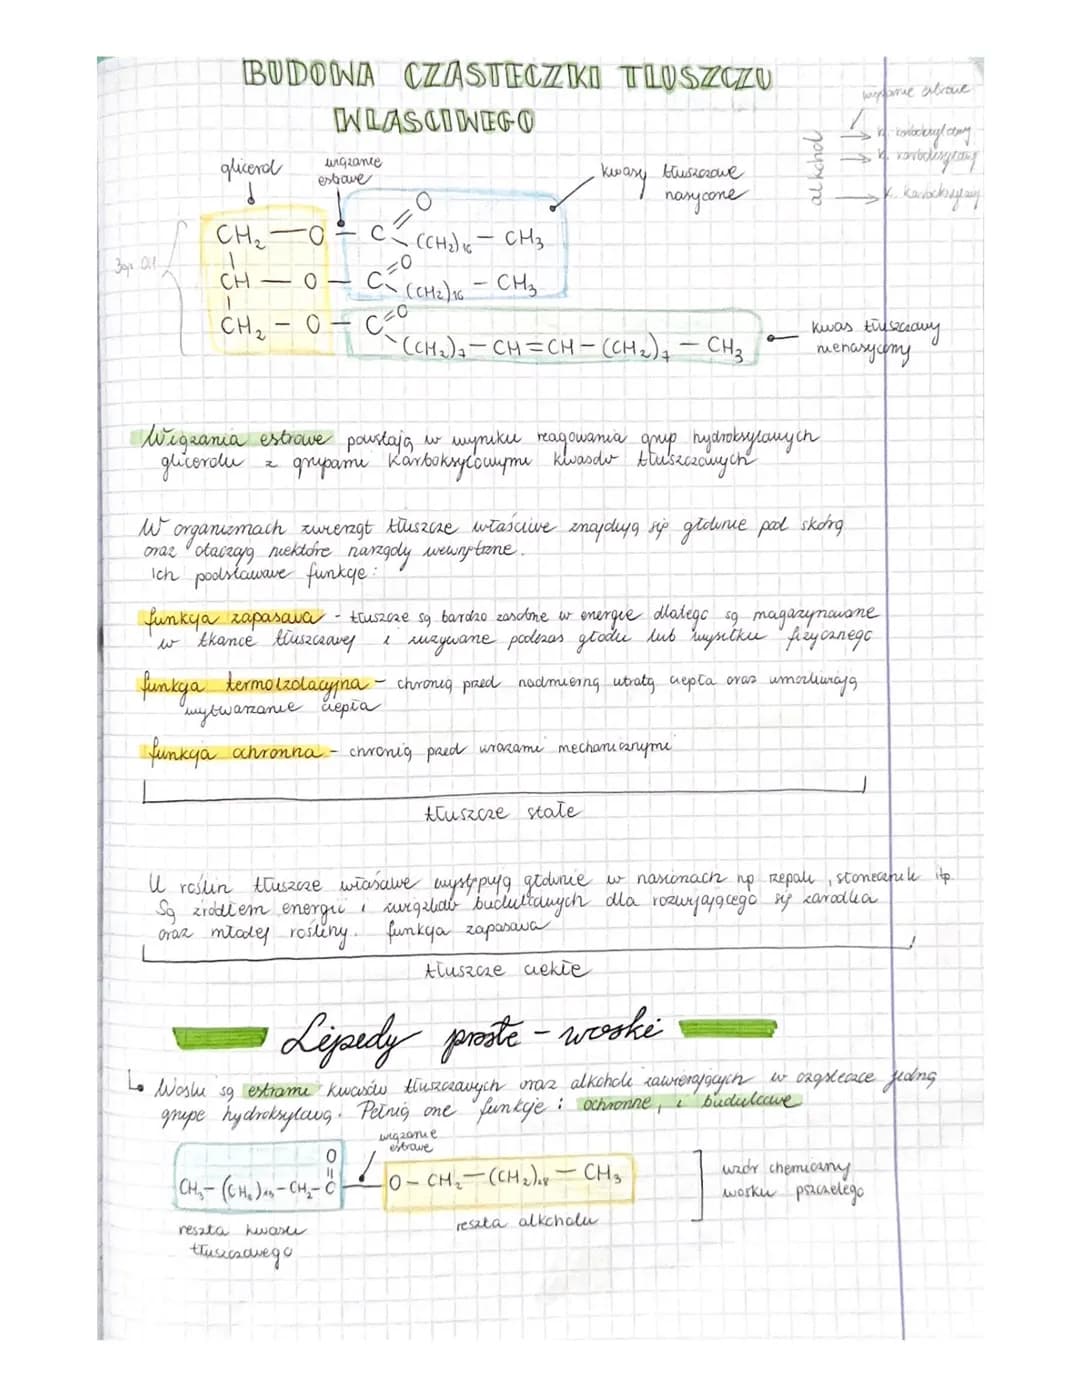 BUDOWA CZĄSTECZKI TŁUSZCZU
WŁAŚCIWEGO
wiązanie estrowe
alkohol
k. karboksylowy
k. karboksylowy
k. karboksylowy
glicerol
wiązanie
estrowe
kwasy tłuszczowe
nasycone
3gr. OH
O
CH₂ — O — C (CH₂)₁₆ — CH₃
O
CH — O — C (CH₂)₁₆ — CH₃
O
CH₂ — O — C
(CH₂)₇ — CH = CH — (CH₂)₇ — CH₃
kwas tłuszczowy
nienasycony
Wiązania estrowe powstają w wyniku reagowania grup hydroksylowych
glicerolu z grupami karboksylowymi kwasów tłuszczowych
W organizmach zwierząt tłuszcze właściwe znajdują się głównie pod skórą
oraz otaczają niektóre narządy wewnętrzne.
Ich podstawowe funkcje:
funkcja zapasowa - tłuszcze są bardzo zasobne w energię dlatego są magazynowane
w tkance tłuszczowej i zużywane podczas głodu lub wysiłku fizycznego
funkcja termoizolacyjna - chronią przed nadmierną utratą ciepła oraz umożliwiają
wytwarzanie ciepła
funkcja ochronna - chronią przed urazami mechanicznymi
tłuszcze stałe
U roślin tłuszcze właściwe występują głównie w nasionach np rzepaku, słonecznik itp.
Są źródłem energii i związków budulcowych dla rozwijającego się zarodka
oraz młodej rośliny. funkcja zapasowa
tłuszcze ciekłe
Lipidy proste - woski
Woski są estrami kwasów tłuszczowych oraz alkoholi zawierających w cząsteczce jedną
grupę hydroksylową. Pełnią one funkcje: ochronne, i budulcowe
wiązanie
estrowe
O
CH₃ — (CH₂)₁₃ — CH₂ — C — O — CH₂ — (CH₂)₂₈ — CH₃
wzór chemiczny
wosku pszczelego
reszta kwasu
tłuszczowego
reszta alkoholu